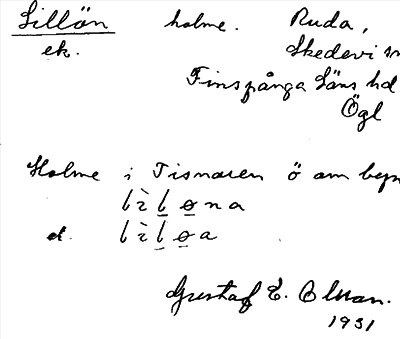 Lillön holme. Ruda,
ek. Skedevi sn
Finspånga läns hd
Ögl
Holme i Tisnaren ö om byn
lìlөna
d. lìlөa
Gustaf E. Olsson.
1931